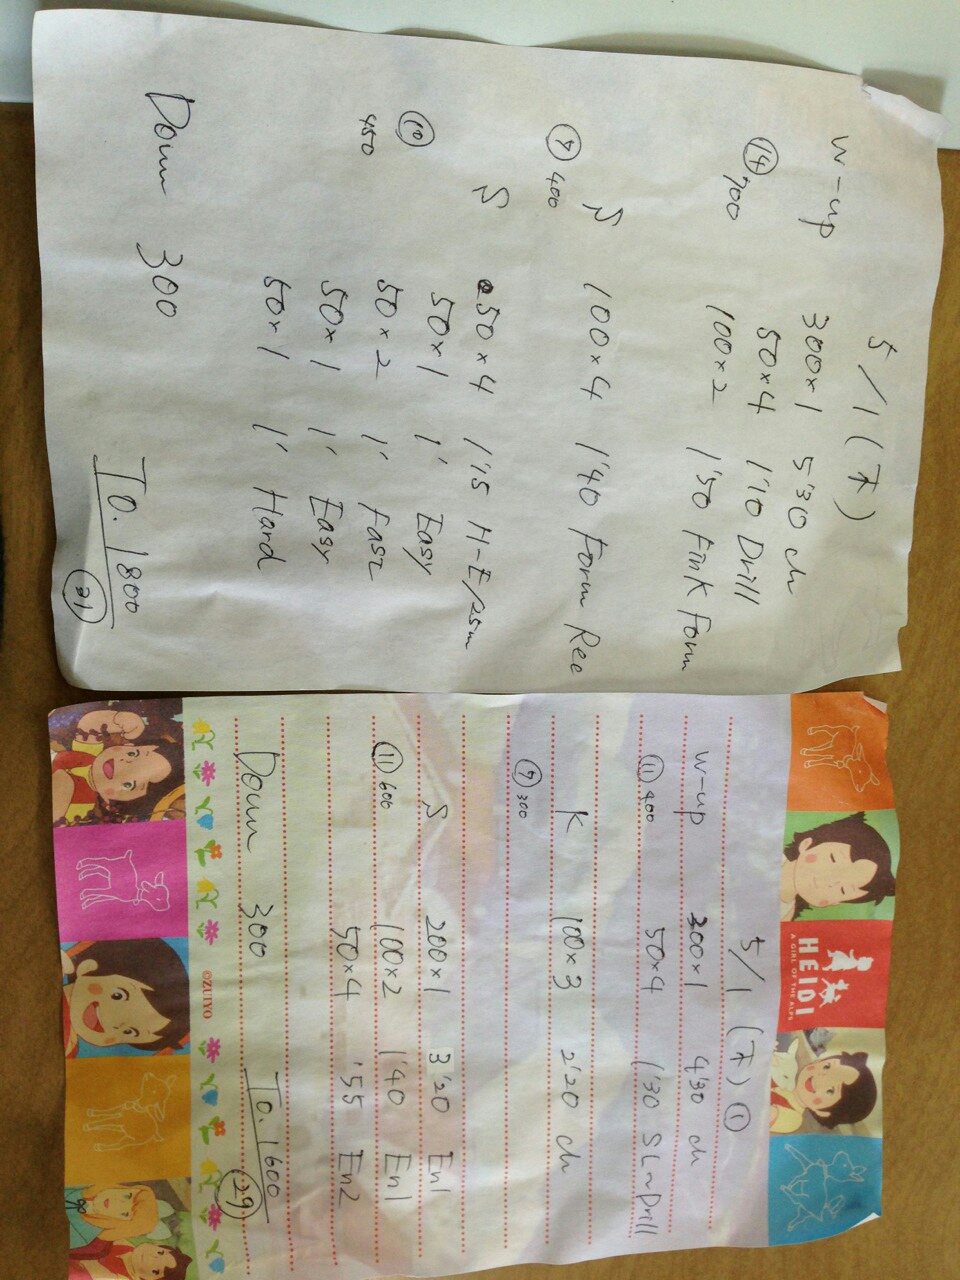 5/1 (木)
W-up 300×1 5'30 ch
50×4 1'10 Drill
⑭ 700 100×2 1'50 Fink Form
S 100×4 1'40 Form Ree
⑦ 400
S 50×4 1'15 H-E/25m
50×1 1' Easy
⑩ 450 50×2 1' Fast
50×1 1' Easy
50×1 1' Hard
Down 300
To. 1800
㉛
HEIDI
A GIRL OF THE ALPS
5/1 (木) ①
W-up 200×1 4'30 ch
⑪ 400 50×4 1'30 SL~Drill
K 100×3 2'20 ch
⑦ 300
S 200×1 3'20 En1
⑪ 600 100×2 1'40 En1
50×4 '55 En2
Down 300
To. 1600
㉙
©ZUIYO